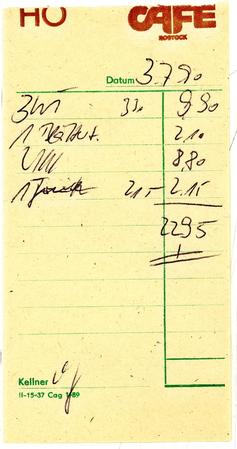 HO CAFE
ROSTOCK
Datum 3.7.90
3 330 9,90
1 2.10
8,80
1 215 2.15
22.95
Kellner
II-15-37 Cag 1/89